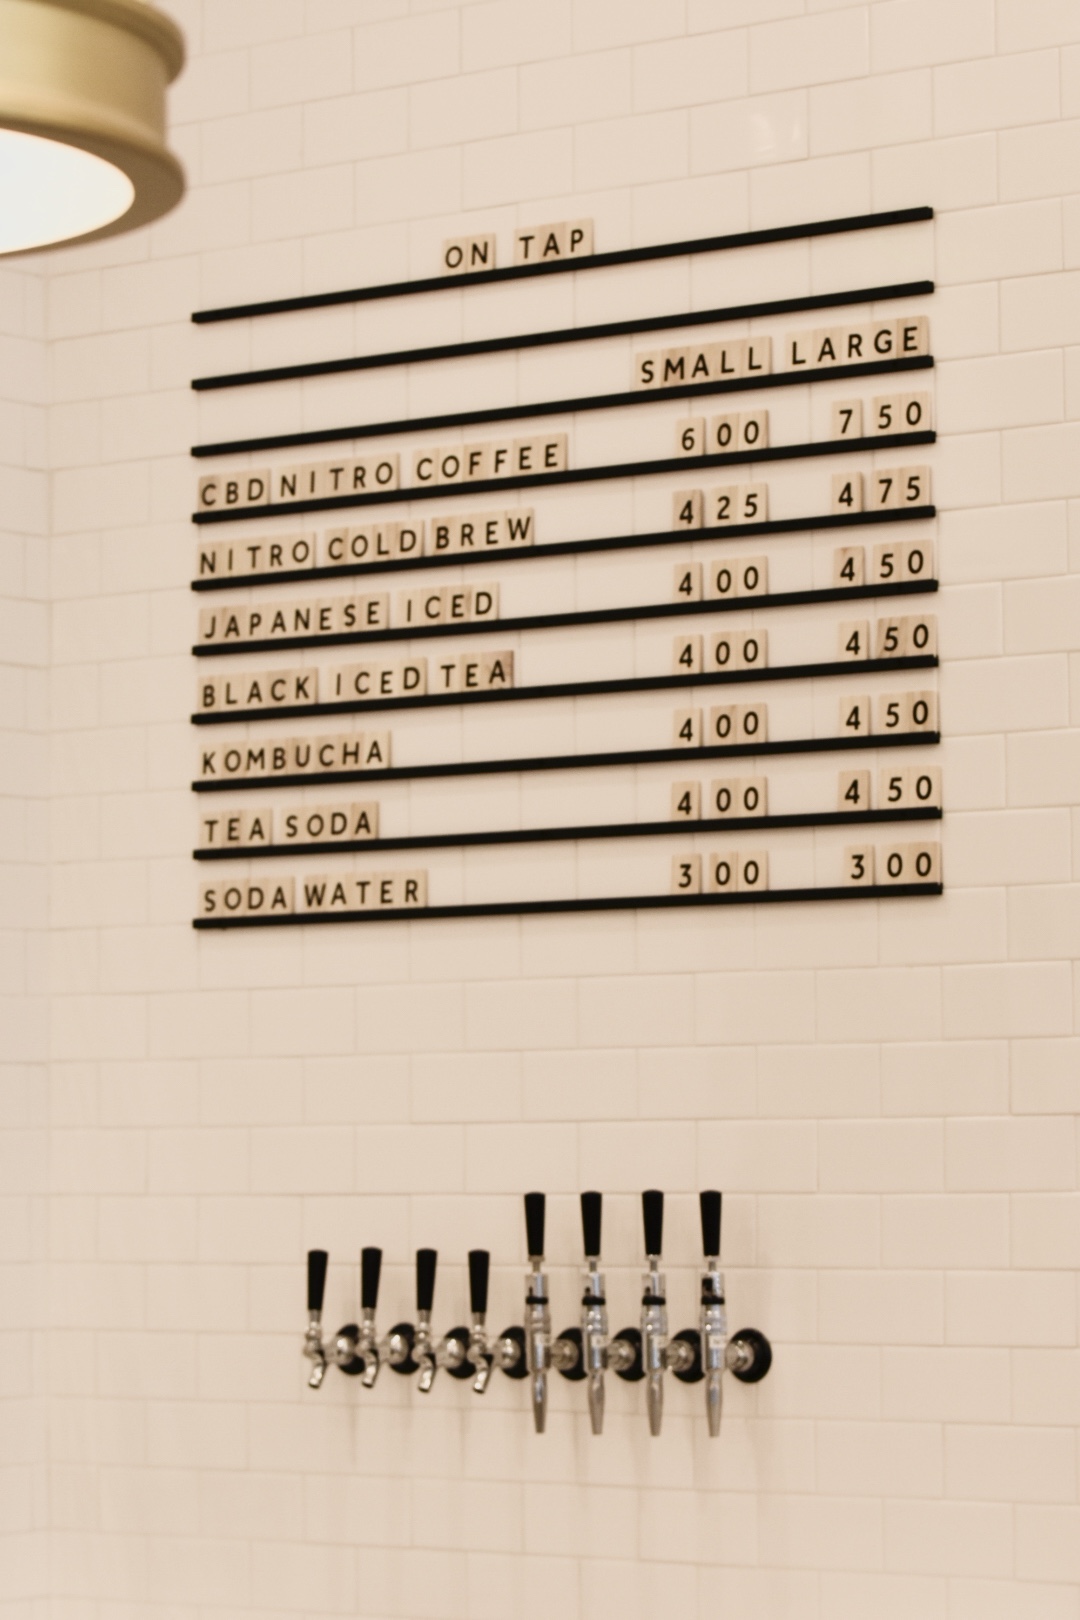 ON TAP
SMALL LARGE
CBD NITRO COFFEE 600 750
NITRO COLD BREW 425 475
JAPANESE ICED 400 450
BLACK ICED TEA 400 450
KOMBUCHA 400 450
TEA SODA 400 450
SODA WATER 300 300